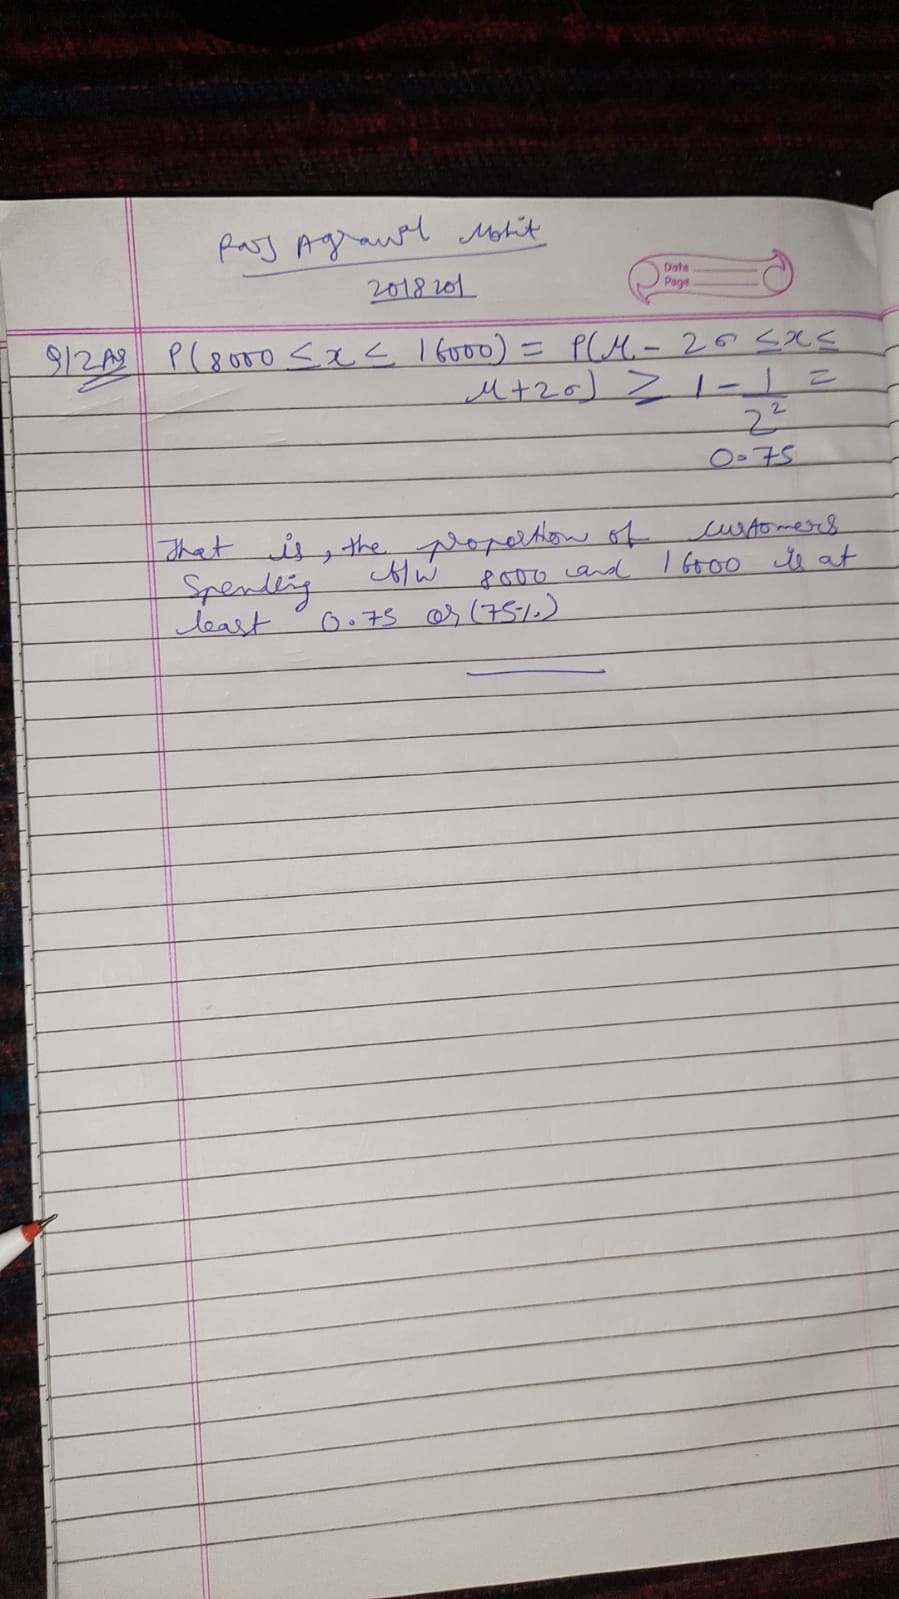 Raj Agrawal Mohit
2018201
Date
Page
Q/2 Ans P(8000 ≤ x ≤ 16000) = P(μ - 2σ ≤ x ≤
μ + 2σ) ≥ 1 - 1/2² =
0.75
That is, the proportion of customers
Spending b/w 8000 and 16000 is at
least 0.75 or (75%)